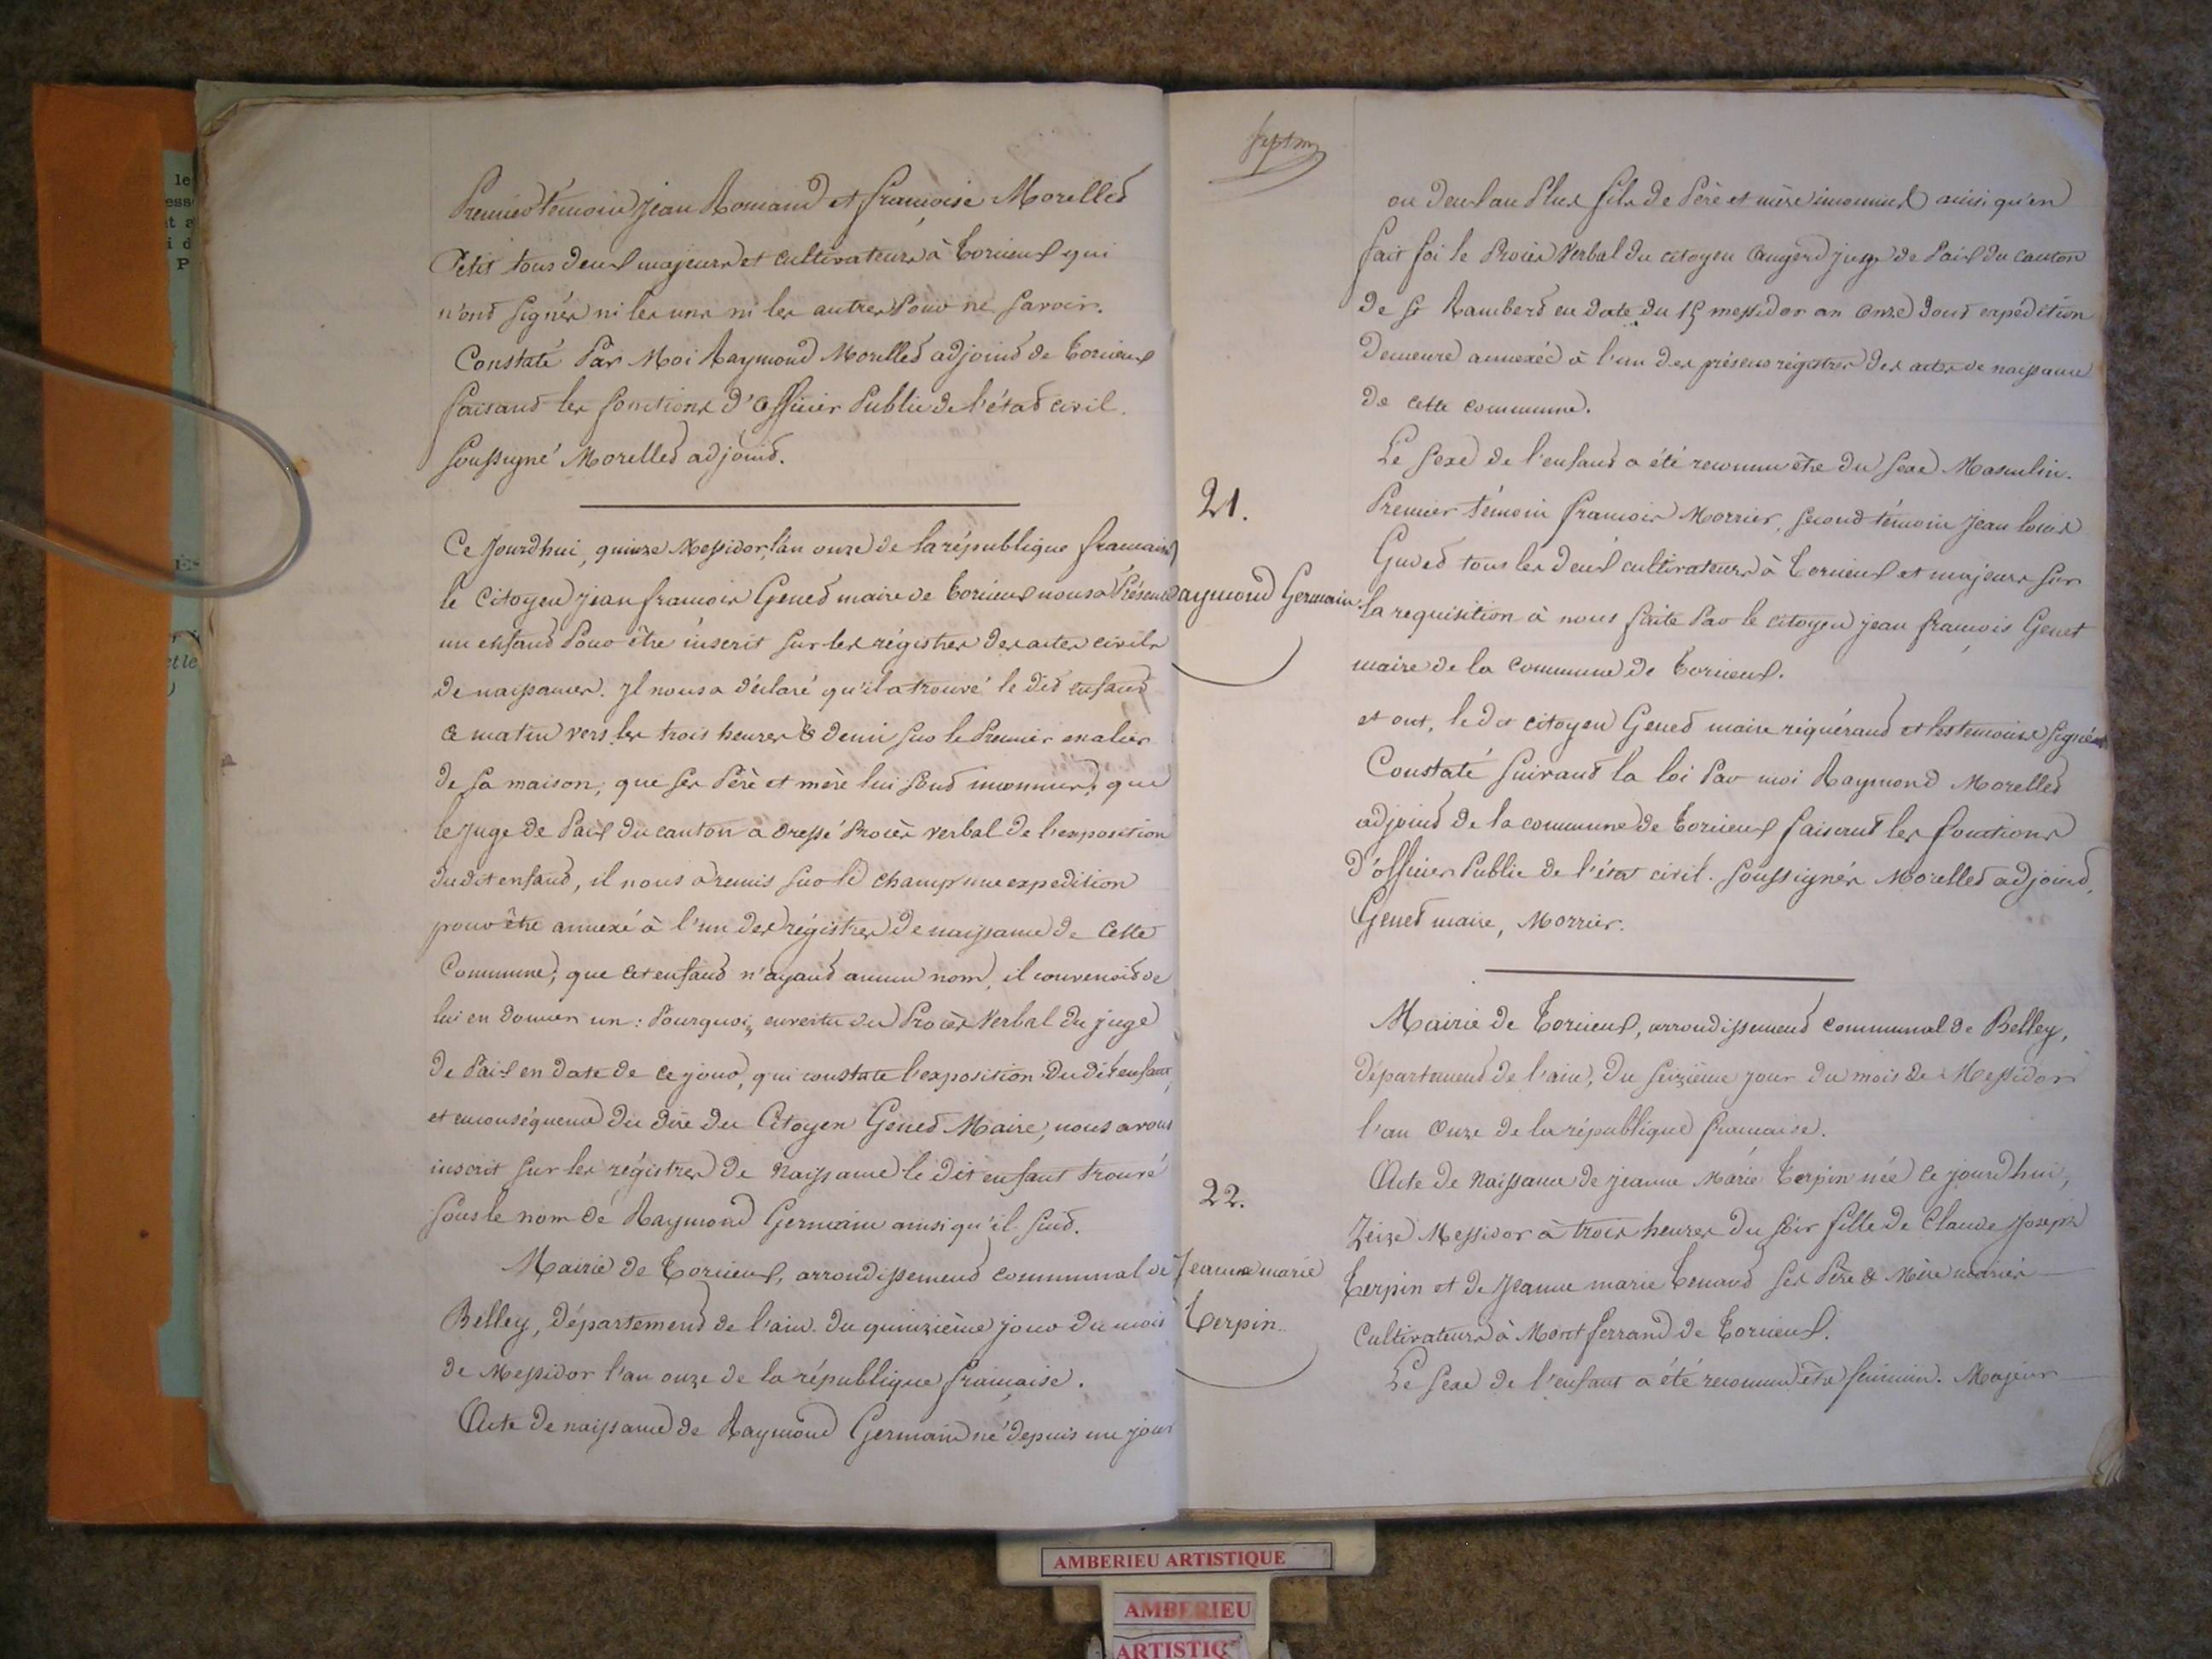 Premier témoin jean Romand et françoise Morelled
Petit tous deux majeurs et cultivateurs à Torcieux qui
n'ont signés ni les uns ni les autres Pour ne savoir.
Constaté Par Moi Raymond Morelled adjoind de Torcieux
faisand les fonctions d'Officier Public de l'étad civil.
soussigné Morelled adjoind.
Ce Jourd'hui, quinze Messidor, l'an onze de la république francaise
le Citoyen jean francois Gened maire de Torcieux nous a Présenté
un enfand Pour être inscrit sur les régistres des actes civils
de naissances. Il nous a déclaré qu'il a trouvé le did enfand
ce matin vers les trois heures & demi sur le Premier escalier
de sa maison, que ses Père et mère lui sond inconnus, que
le Juge de Paix du canton a dressé Procès verbal de l'exposition
du dit enfand, il nous a remis sur le champ une expedition
pour être annexé à l'un des régistres de naissance de Cette
Commune, que cet enfand n'ayand aucun nom, il convenoid de
lui en donner un : Pourquoi, en vertu du Procès Verbal du juge
de Paix en date de ce jour, qui constate l'exposition du dit enfant,
et en conséquence du dire du Citoyen Gened Maire, nous avons
inscrit sur les régistres de Naissance le dit enfant trouvé
sous le nom de Raymond Germain ainsi qu'il suid.
Mairie de Torcieux, arrondissemend communal de
Belley, départemend de l'ain. du quinzième jour du mois
de Messidor l'an onze de la république française.
Acte de naissance de Raymond Germain né depuis un jour
21.
Raymond Germain.
22.
Jeanne marie
Terpin.
ou deux au Plus fils de Père et mère inconnus ainsi qu'en
fait foi le Procès Verbal du citoyen Augerd juge de Paix du canton
de St Ramberd en date du 15 messidor an Onze dont expédition
demeure annexée à l'un des présens régistres des actes de naissance
de cette commune.
Le sexe de l'enfand a été reconnu être du sexe Masculin.
Premier témoin francois Morrier, second témoin jean louis
Guded tous les deux cultivateurs à Torcieux et majeurs sur
la requisition à nous faite Par le citoyen jean françois Genet
maire de la Commune de Torcieux.
et ont, le dit citoyen Gened maire réquérand et les temoins signés
Constaté suivand la loi Par moi Raymond Morelled
adjoind de la commune de Torcieux faisand les fonctions
d'officier Public de l'état civil. soussignés Morelled adjoind,
Gened maire, Morrier.
Mairie de Torcieux, arrondissemend communal de Belley,
département de l'ain, du seizième jour du mois de Messidor
l'an Onze de la république francaise.
Acte de Naissance de jeanne Marie Terpin née ce jourd'hui,
Zeize Messidor à trois heures du soir fille de Claude Joseph
Terpin et de Jeanne marie Tenand ses Père & Mère mariés
Cultivateurs à Mont ferrand de Torcieux.
Le sexe de l'enfant a été reconnu être féminin. Majeur
AMBERIEU ARTISTIQUE
AMBERIEU
ARTISTIQ